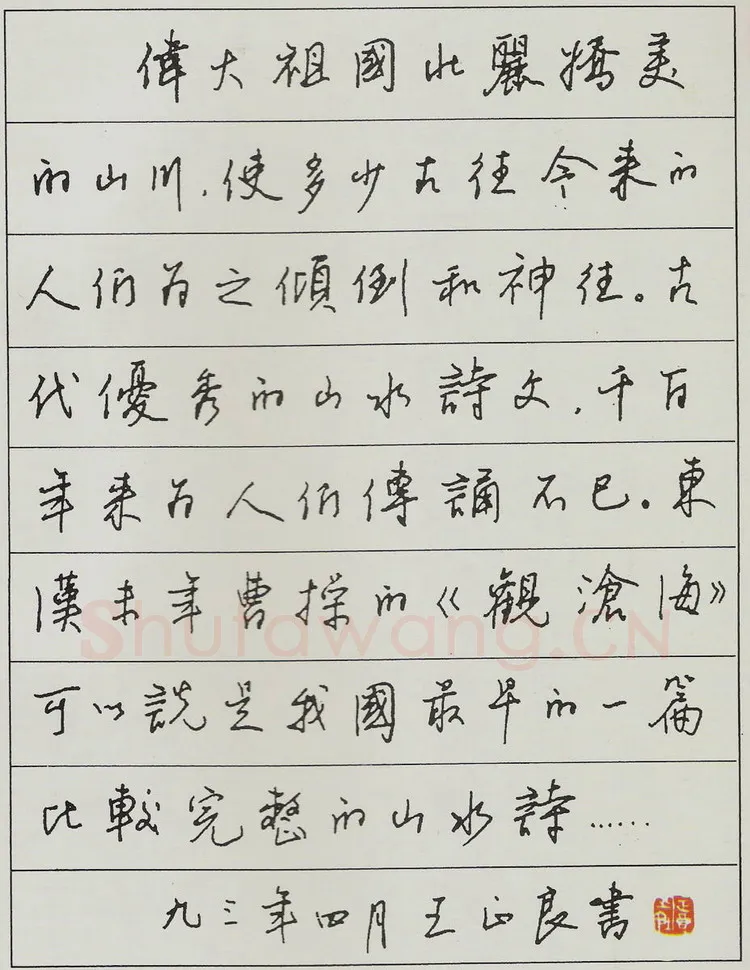 偉大祖國壯麗嬌美
的山川，使多少古往今来的
人们为之傾倒和神往。古
代優秀的山水詩文，千百
年来为人们傳誦不已。東
漢末年曹操的《觀滄海》
可以説是我國最早的一篇
比較完整的山水詩……
九三年四月王正良書
Shufawang.CN